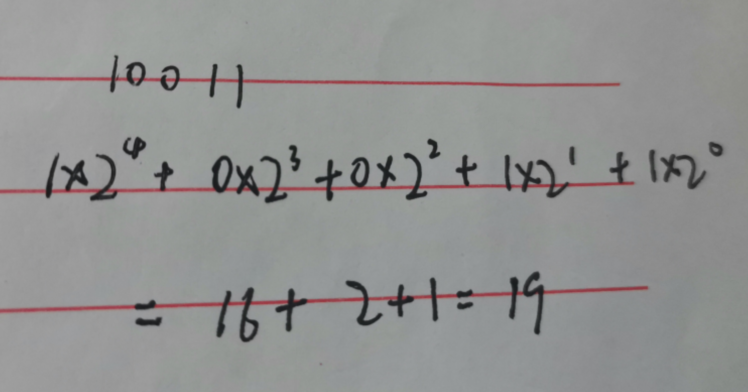 10011
1×2⁴ + 0×2³ + 0×2² + 1×2¹ + 1×2⁰
= 16 + 2 + 1 = 19